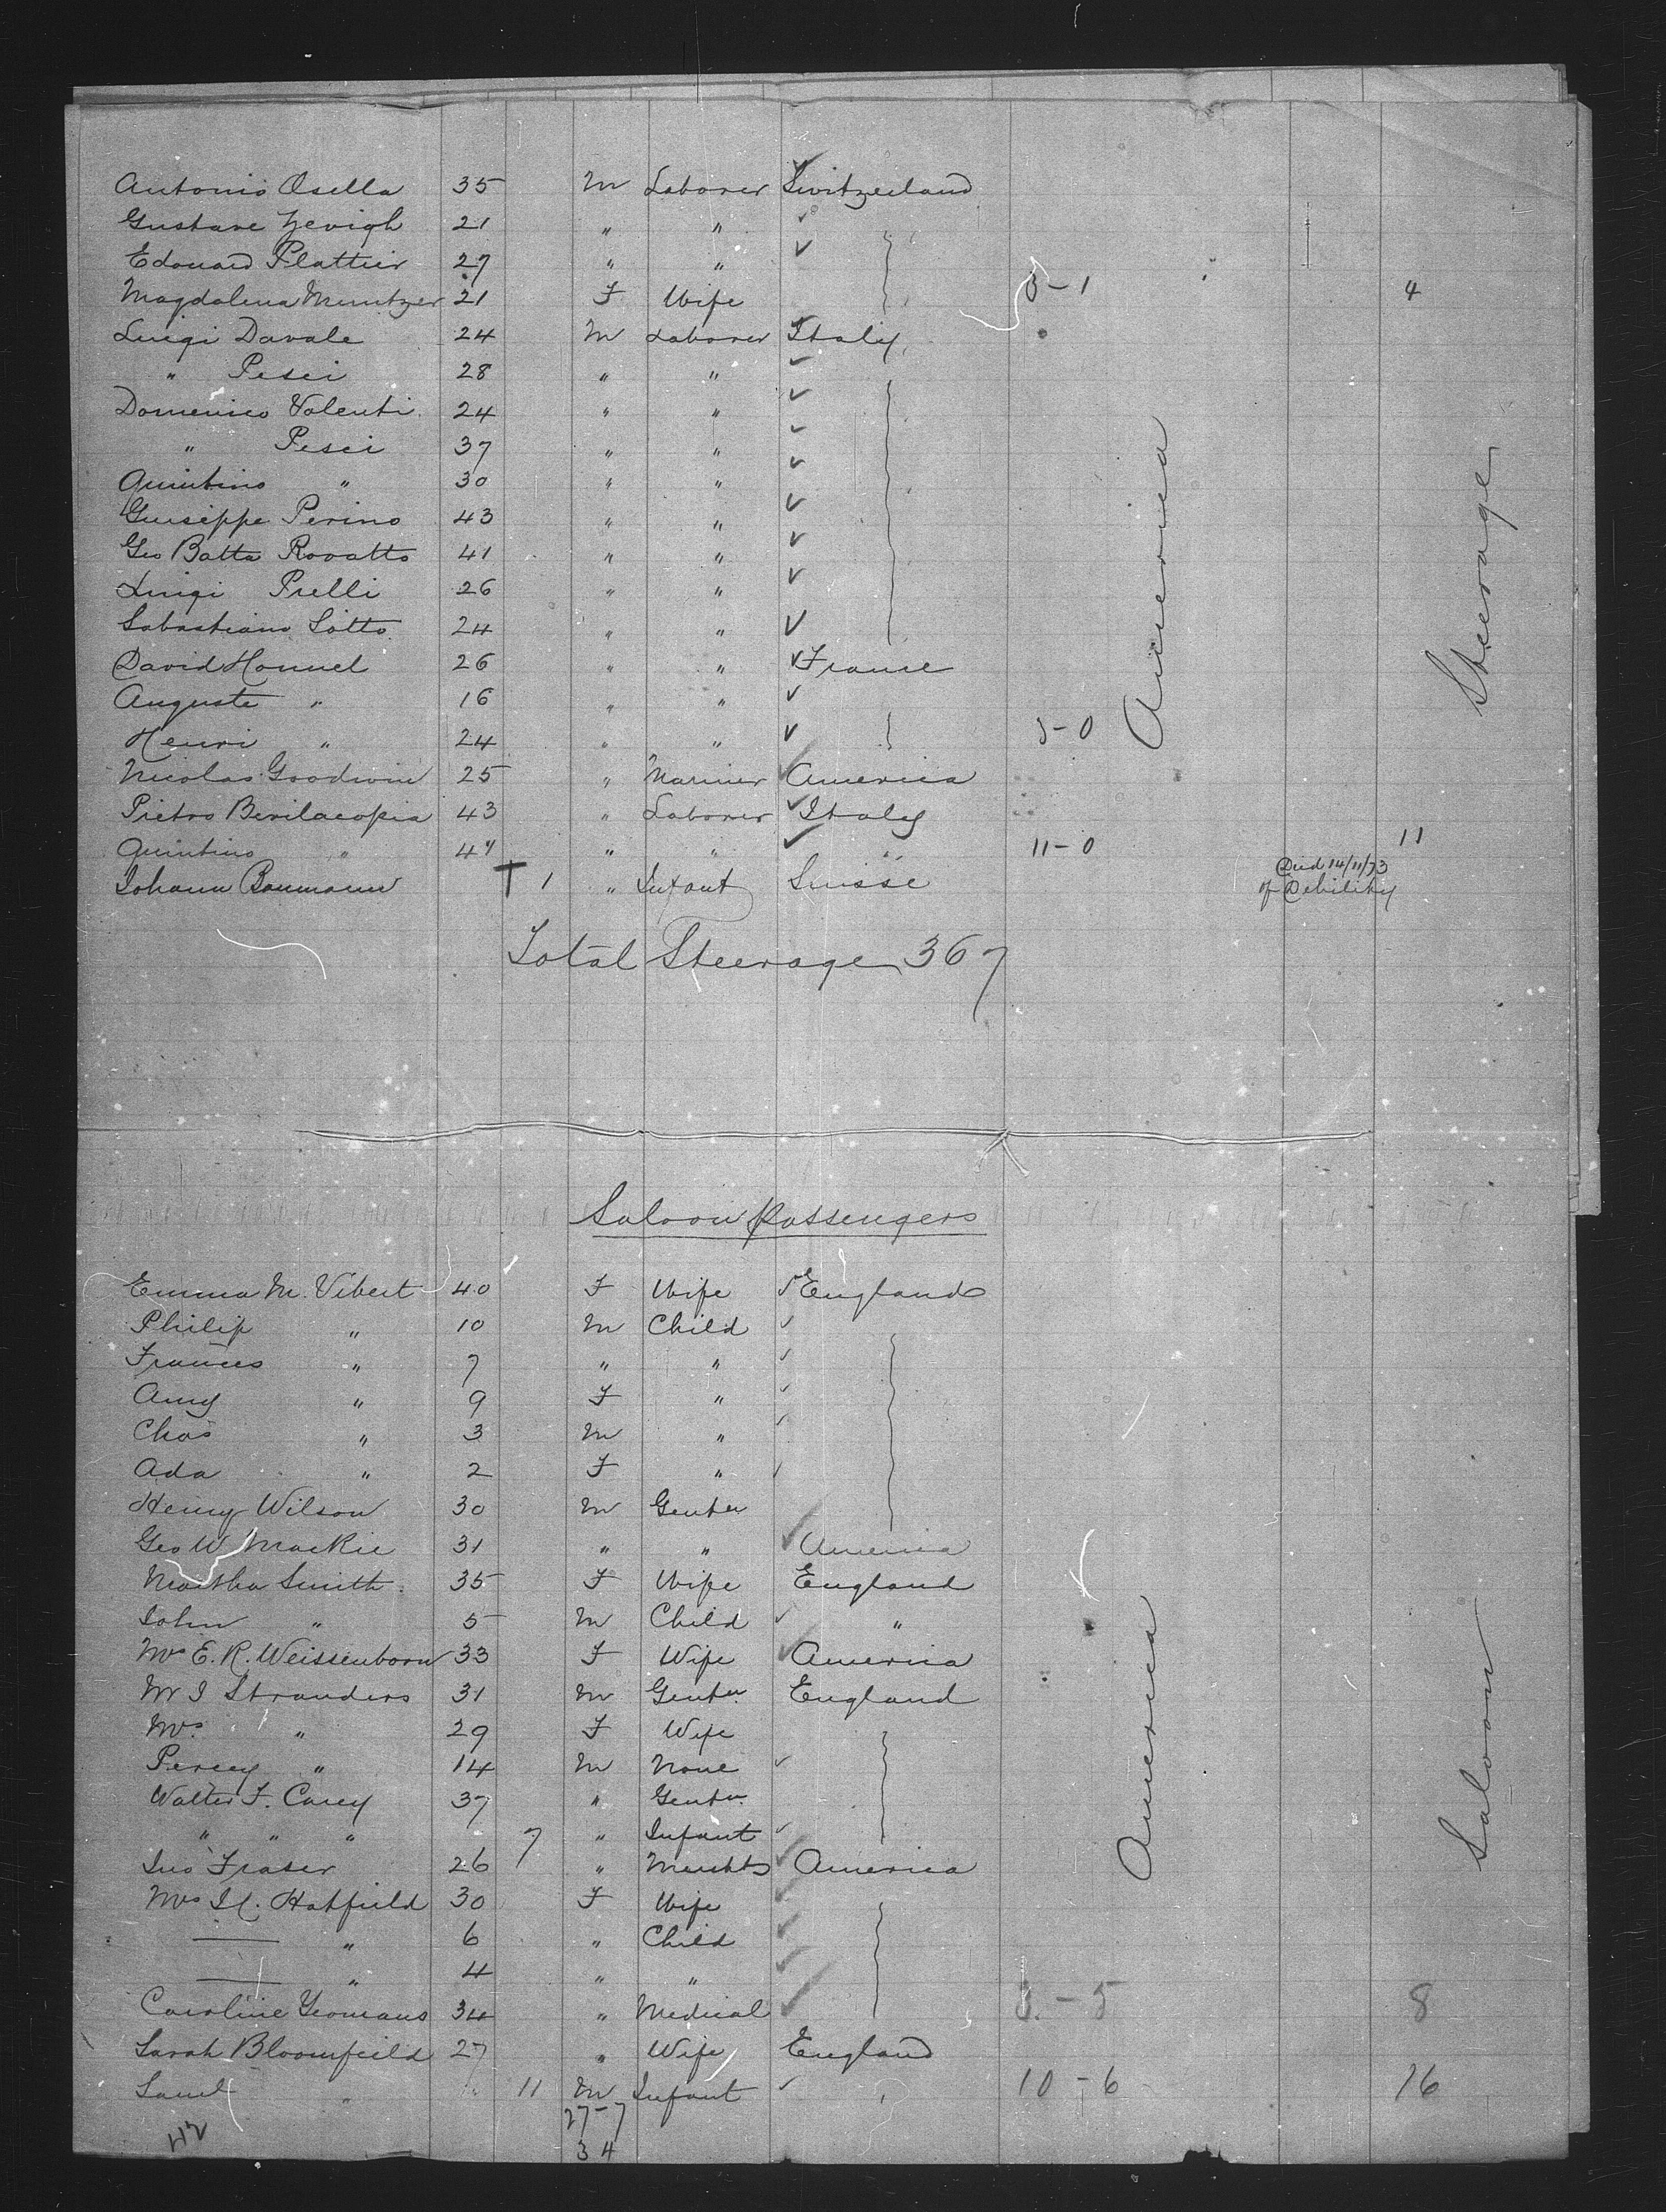 Antonio Osella 35 M Laborer Switzerland
Gustave Zevigh 21 " "
Edouard Plattier 27 " "
Magdalena Muntzer 21 F Wife 3-1 4
Luigi Davale 24 M Laborer Italy
" Pesci 28 " "
Domenico Valenti 24 " "
" Pesci 37 " "
Quintino " 30 " "
Guiseppe Perino 43 " "
Geo Batta Rovatto 41 " "
Luigi Prelli 26 " "
Sabastiano Sotto 24 " "
David Honnel 26 " " France
Auguste " 16 " "
Henri " 24 " " 3-0
America
Steerage
Nicolas Goodwin 25 " Mariner America
Pietro Bevilacopia 43 " Laborer Italy
Quintino " 47 " " " 11-0 11
Johann Baumann 1 " Infant Suisse Died 14/11/73 of Debility
Total Steerage 367
Saloon Passengers
Emma M. Vibert 40 F Wife England
Philip " 10 M Child
Frances " 7 " "
Amy " 9 F "
Chas " 3 M "
Ada " 2 F "
Henry Wilson 30 M Gentn
Geo W Mackie 31 " " America
Martha Smith 35 F Wife England
John " 5 M Child "
Mrs E. R. Weissenborn 33 F Wife America
Mr J Stranders 31 M Gentn England
Mrs " 29 F Wife
Percy " 14 M None
Walter F. Carey 37 " Gentn
" " " 7 " Infant
Jno Fraser 26 " Mercht America
Mrs J C. Hatfield 30 F Wife
" 6 " Child
" 4 " "
Caroline Yeomans 34 " Medical 3-5 8
Sarah Bloomfeild 27 " Wife England
Saml " 11 M Infant " 10-6 16
America
Saloon
27-7
34
42